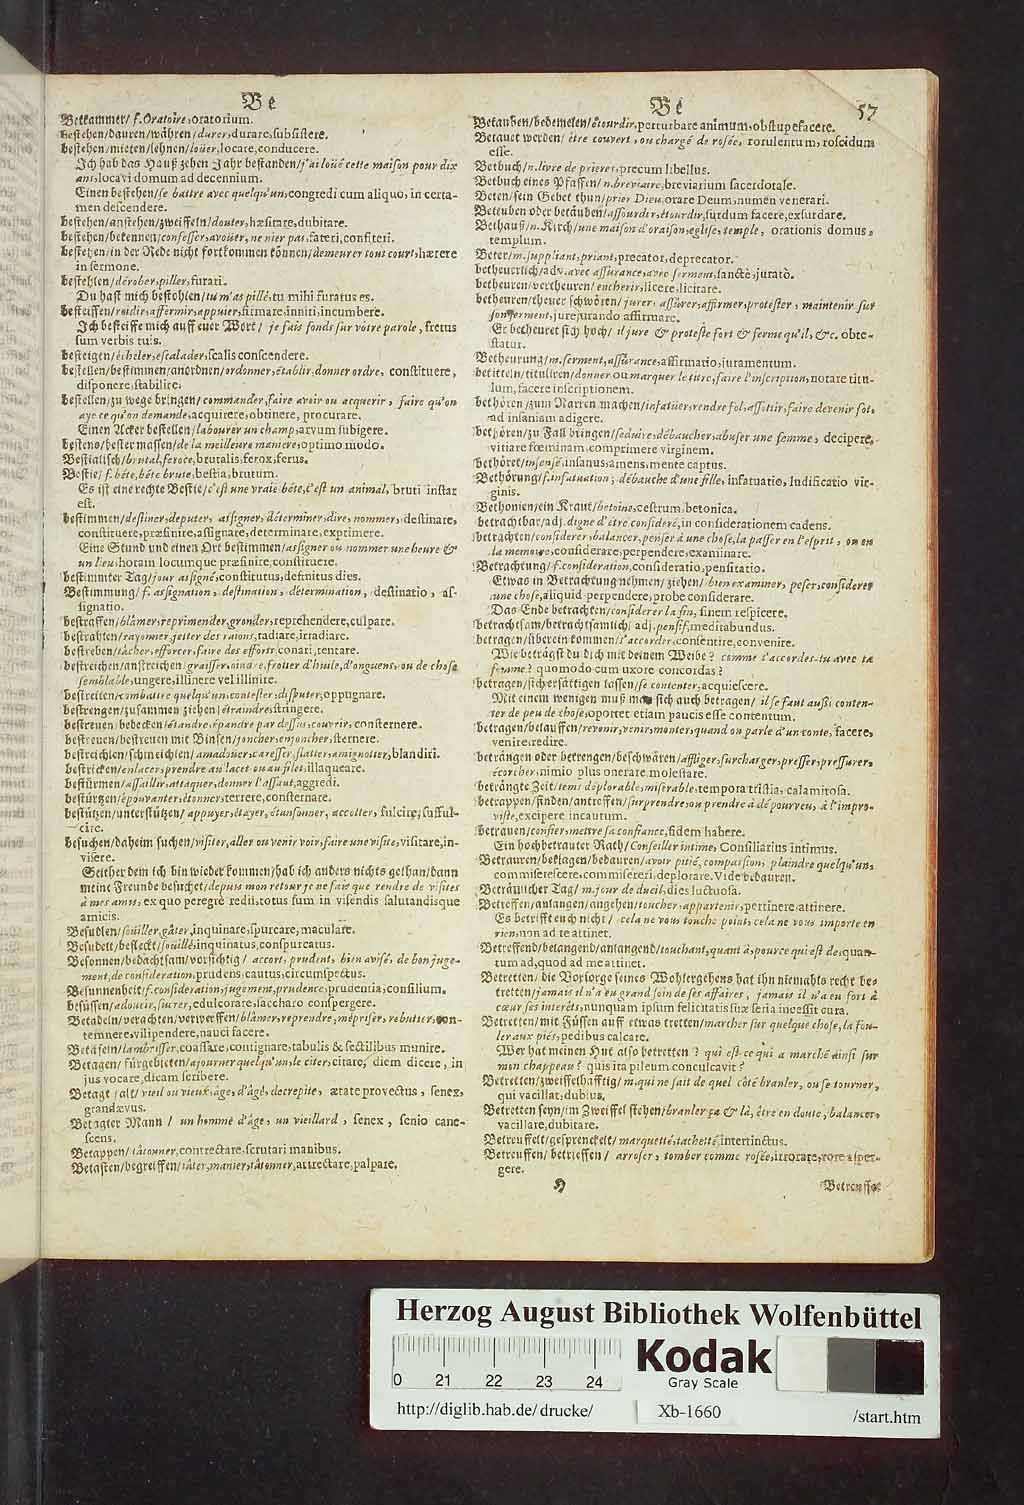 Be
Betkammer/ f. Oratoire, oratorium.
bestehen/dauren/währen/ durer, durare, subsistere.
bestehen/mieten/lehnen/ loüer, locare, conducere.
Ich hab das Hauß zehen Jahr bestanden/ j'ai loüé cette maison pour dix
ans, locavi domum ad decennium.
Einen bestehen/ se battre avec quelqu'un, congredi cum aliquo, in certa-
men descendere.
bestehen/anstehen/zweiffeln/ douter, hæsitare, dubitare.
bestehen/bekennen/ confesser, avoüer, ne nier pas, fateri, confiteri.
bestehen/in der Rede nicht fortkommen können/ demeurer tout court, hærere
in sermone.
bestehlen/ dérober, piller, furari.
Du hast mich bestohlen/ tu m'as pillé, tu mihi furatus es.
besteiffen/ roidir, affermir, appuier, firmare, inniti, incumbere.
Ich besteiffe mich auff euer Wort/ je fais fonds sur vôtre parole, fretus
sum verbis tuis.
besteigen/ écheler, escalader, scalis conscendere.
bestellen/bestimmen/anordnen/ ordonner, établir, donner ordre, constituere,
disponere, stabilire.
bestellen/zu wege bringen/ commander, faire avoir ou acquerir, faire qu'on
aye ce qu'on demande, acquirere, obtinere, procurare.
Einen Acker bestellen/ labourer un champ, arvum subigere.
bestens/bester massen/ de la meilleure maniere, optimo modo.
Bestialisch/ brutal, feroce, brutalis, ferox, ferus.
Bestie/ f. bête, bête brute, bestia, brutum.
Es ist eine rechte Bestie/ c'est une vraie bête, c'est un animal, bruti instar
est.
bestimmen/ destiner, deputer, assigner, déterminer, dire, nommer, destinare,
constituere, præfinire, assignare, determinare, exprimere.
Eine Stund und einen Ort bestimmen/ assigner ou nommer une heure &
un lieu, horam locumque præfinire, constituere.
bestimmter Tag/ jour assigné, constitutus, definitus dies.
Bestimmung/ f. assignation, destination, détermination, destinatio, as-
signatio.
bestraffen/ blâmer, reprimender, gronder, reprehendere, culpare.
bestrahlen/ rayonner, jetter des raions, radiare, irradiare.
bestreben/ tâcher, efforcer, faire des efforts, conari, tentare.
bestreichen/anstreichen/ graisser, oindre, frotter d'huile, d'onguens, ou de chose
semblable, ungere, illinere vel illinire.
bestreiten/ combattre quelqu'un, contester, disputer, oppugnare.
bestrengen/zusammen ziehen/ étraindre, stringere.
bestreuen/bedecken/ étandre, épandre par dessus, couvrir, consternere.
bestreuen/bestreuen mit Binsen/ joncher, enjoncher, sternere.
bestreichlen/schmeichlen/ amadoüer, caresser, flatter, amignotter, blandiri.
bestricken/ enlacer, prendre au lacet ou au filet, illaqueare.
bestürmen/ assaillir, attaquer, donner l'assaut, aggredi.
bestürtzen/ épouvanter, étonner, terrere, consternare.
bestützen/unterstützen/ appuyer, étayer, étansonner, accotter, fulcire, suffulcire.
besuchen/daheim suchen/ visiter, aller ou venir voir, faire une visite, visitare, in-
visere.
Seither dem ich bin wieder kommen/hab ich anders nichts gethan/dann
meine Freunde besuchet/ depuis mon retour je ne fais que rendre de visites
à mes amis, ex quo peregrè redii, totus sum in visendis salutandisque
amicis.
Besudlen/ soüiller, gâter, inquinare, spurcare, maculare.
Besudelt/befleckt/ souillé, inquinatus, conspurcatus.
Besonnen/bedachtsam/vorsichtig/ accort, prudent, bien avisé, de bon juge-
ment, de consideration, prudens, cautus, circumspectus.
Besunnenheit/ f. consideration, jugement, prudence, prudentia, consilium.
besüssen/ adoucir, sucrer, edulcorare, saccharo conspergere.
Betadeln/verachten/verwerffen/ blâmer, reprendre, mépriser, rebutter, con-
temnere, vilipendere, nauci facere.
Betäfeln/ lambrisser, coassare, contignare, tabulis & sectilibus munire.
Betagen/ fürgebieten/ ajourner quelqu'un, le citer, citare, diem dicere, in
jus vocare, dicam scribere.
Betagt/alt/ vieil ou vieux, âgé, d'âge, decrepite, ætate provectus, senex,
grandævus.
Betagter Mann/ un homme d'âge, un vieillard, senex, senio cane-
scens.
Betappen/ tâtonner, contrectare, scrutari manibus.
Betasten/begreiffen/ tâter, manier, tâtonner, attrectare, palpare.
Be
57
Betauben/bedemelen/ étourdir, perturbare animum, obstupefacere.
Betauet werden/ être couvert, ou chargé de rosée, rorulentum, roscidum
esse.
Betbuch/ n. livre de prieres, precum libellus.
Betbuch eines Pfaffen/ n. breviaire, breviarium sacerdotale.
Beten/sein Gebet thun/ prier Dieu, orare Deum, numen venerari.
Beteuben oder betäuben/ assourdir, étourdir, surdum facere, exsurdare.
Bethauß/ n. Kirch/ une maison d'oraison, eglise, temple, orationis domus,
templum.
Beter/ m. suppliant, priant, precator, deprecator.
betheuerlich/adv. avec assurance, avec serment, sanctè, juratò.
betheuren/vertheuren/ encherir, licere, licitare.
betheuren/theuer schwören/ jurer, assûrer, affirmer, protester, maintenir sur
son serment, jurejurando affirmare.
Er betheuret sich hoch/ il jure & proteste fort & ferme qu'il, &c. obte-
statur.
Betheurung/ m. serment, assûrance, affirmatio, juramentum.
betitteln/tituliren/ donner ou marquer le titre, faire l'inscription, notare titu-
lum, facere inscriptionem.
bethören/zum Narren machen/ infatüer, rendre fol, assottir, faire devenir sot,
ad insaniam adigere.
bethören/zu Fall bringen/ seduire, débaucher, abuser une femme, decipere,
vitiare fœminam, comprimere virginem.
bethöret/ insensé, insanus, amens, mente captus.
Bethörung/ f. infatuation; débauche d'une fille, infatuatio, ludificatio vir-
ginis.
Bethonien/ein Kraut/ betoine, cestrum, betonica.
betrachtbar/adj. digne d'être consideré, in considerationem cadens.
betrachten/ considerer, balancer, penser à une chose, la passer en l'esprit, ou en
la memoire, considerare, perpendere, examinare.
Betrachtung/ f. consideration, consideratio, pensitatio.
Etwas in Betrachtung nehmen/ ziehen/ bien examiner, peser, considerer
une chose, aliquid perpendere, probe considerare.
Das Ende betrachten/ considerer la fin, finem respicere.
betrachtsam/betrachtsamlich/ adj. pensif, meditabundus.
betragen/überein kommen/ s'accorder, consentire, convenire.
Wie beträgst du dich mit deinem Weibe? comme t'accordes-tu avec ta
femme? quomodo cum uxore concordas?
betragen/sich ersättigen lassen/ se contenter, acquiescere.
Mit einem wenigen muß man sich auch betragen/ il se faut aussi conten-
ter de peu de chose, oportet etiam paucis esse contentum.
betragen/belauffen/ revenir, venir, monter, quand on parle d'un conte, facere,
venire, redire.
beträngen oder betrengen/beschwären/ affliger, surcharger, presser, pressurer,
écorcher, nimio plus onerare, molestare.
beträngte Zeit/ tems déplorable, miserable, tempora tristia, calamitosa.
betrappen/finden/antreffen/ surprendre ou prendre à dépourveu, à l'impro-
viste, excipere incautum.
betrauen/ confier, mettre sa confiance, fidem habere.
Ein hochbetrauter Rath/ Conseiller intime, Consiliarius intimus.
Betrauren/beklagen/bedauren/ avoir pitié, compassion, plaindre quelqu'un,
commiserescere, commisereri, deplorare. Vide bedauren.
Betraulicher Tag/ m. jour de dueil, dies luctuosa.
Betreffen/anlangen/angehen/ toucher, appartenir, pertinere, attinere.
Es betrifft euch nicht/ cela ne vous touche point, cela ne vous importe en
rien, non ad te attinet.
Betreffend/belangend/anlangend/ touchant, quant à, pource qui est de, quan-
tum ad, quod ad me attinet.
Betretten/ die Vorsorge seines Wohlergehens hat ihn niemahls recht be-
tretten/ jamais il n'a eu grand soin de ses affaires, jamais il n'a eu fort à
cœur ses interêts, nunquam ipsum felicitatis suæ seria incessit cura.
Betretten/mit Füssen auff etwas tretten/ marcher sur quelque chose, la fou-
ler aux piés, pedibus calcare.
Wer hat meinen Hut also betretten? qui est-ce qui a marché ainsi sur
mon chappeau? quis ita pileum conculcavit?
Betretten/zweiffelhafftig/ m. qui ne sait de quel côté branler, ou se tourner,
qui vacillat, dubius.
Betretten seyn/im Zweiffel stehen/ branler ça & là, être en doute, balancer,
vacillare, dubitare.
Betreuffelt/gesprenckelt/ marquetté, tacheté, intertinctus.
Betreuffen/ betrieffen/ arroser, tomber comme rosée, irrorare, rore asper-
gere.
H
Herzog August Bibliothek Wolfenbüttel
Kodak
Gray Scale
0 21 22 23 24
http://diglib.hab.de/ drucke/ Xb-1660 /start.htm